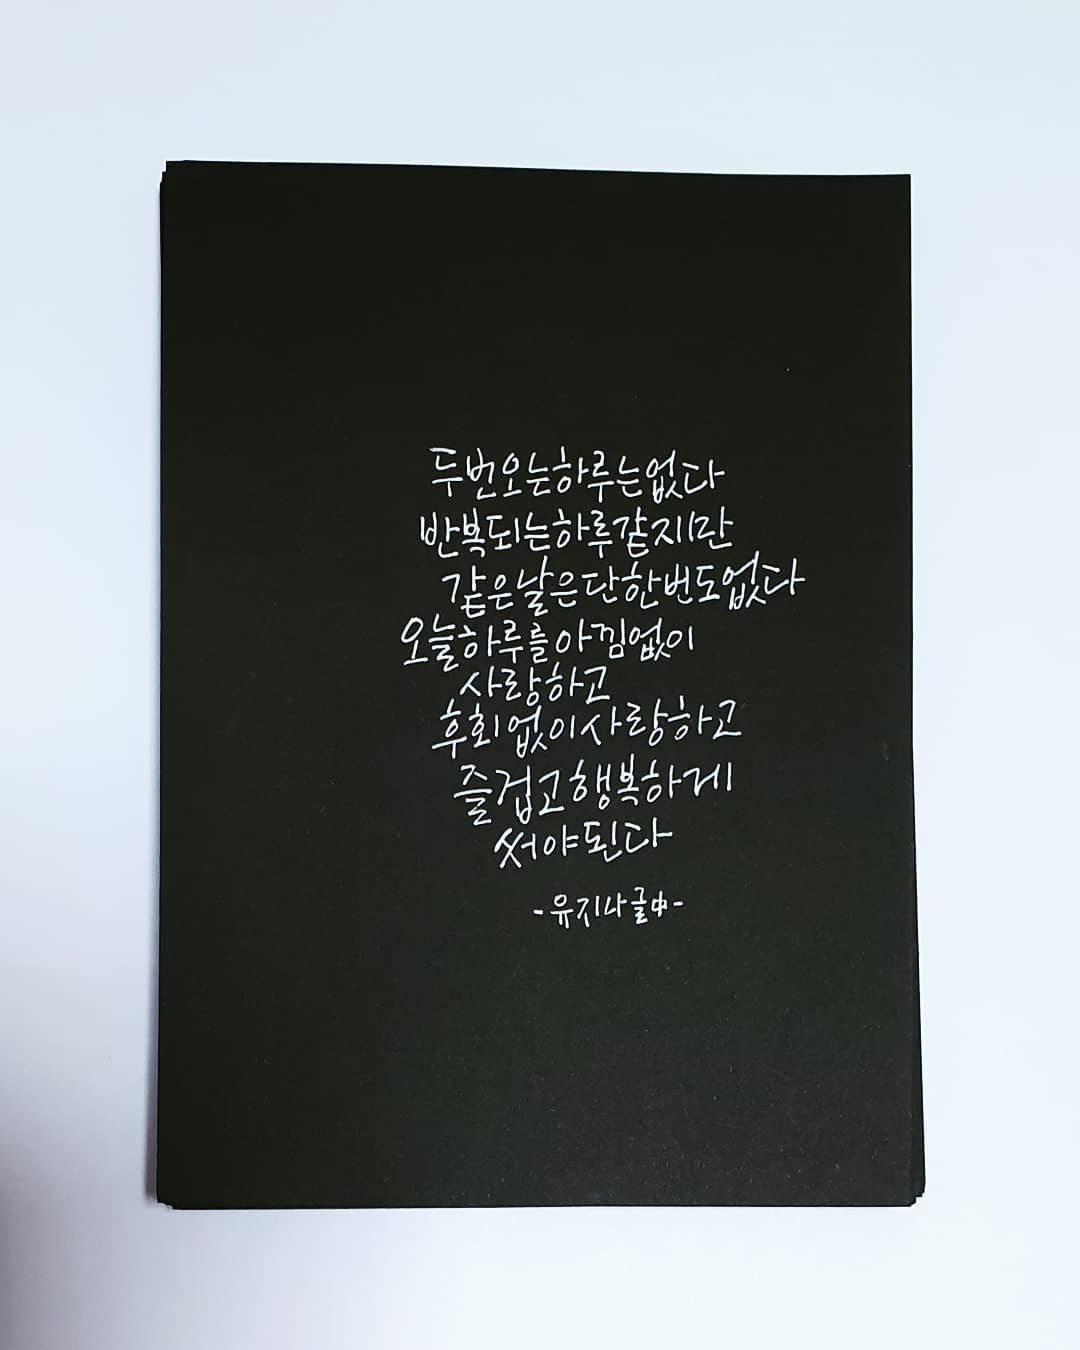 두번오는하루는없다
반복되는하루같지만
같은날은단한번도없다
오늘하루를아낌없이
사랑하고
후회없이사랑하고
즐겁고행복하게
써야된다
-유지나글中-